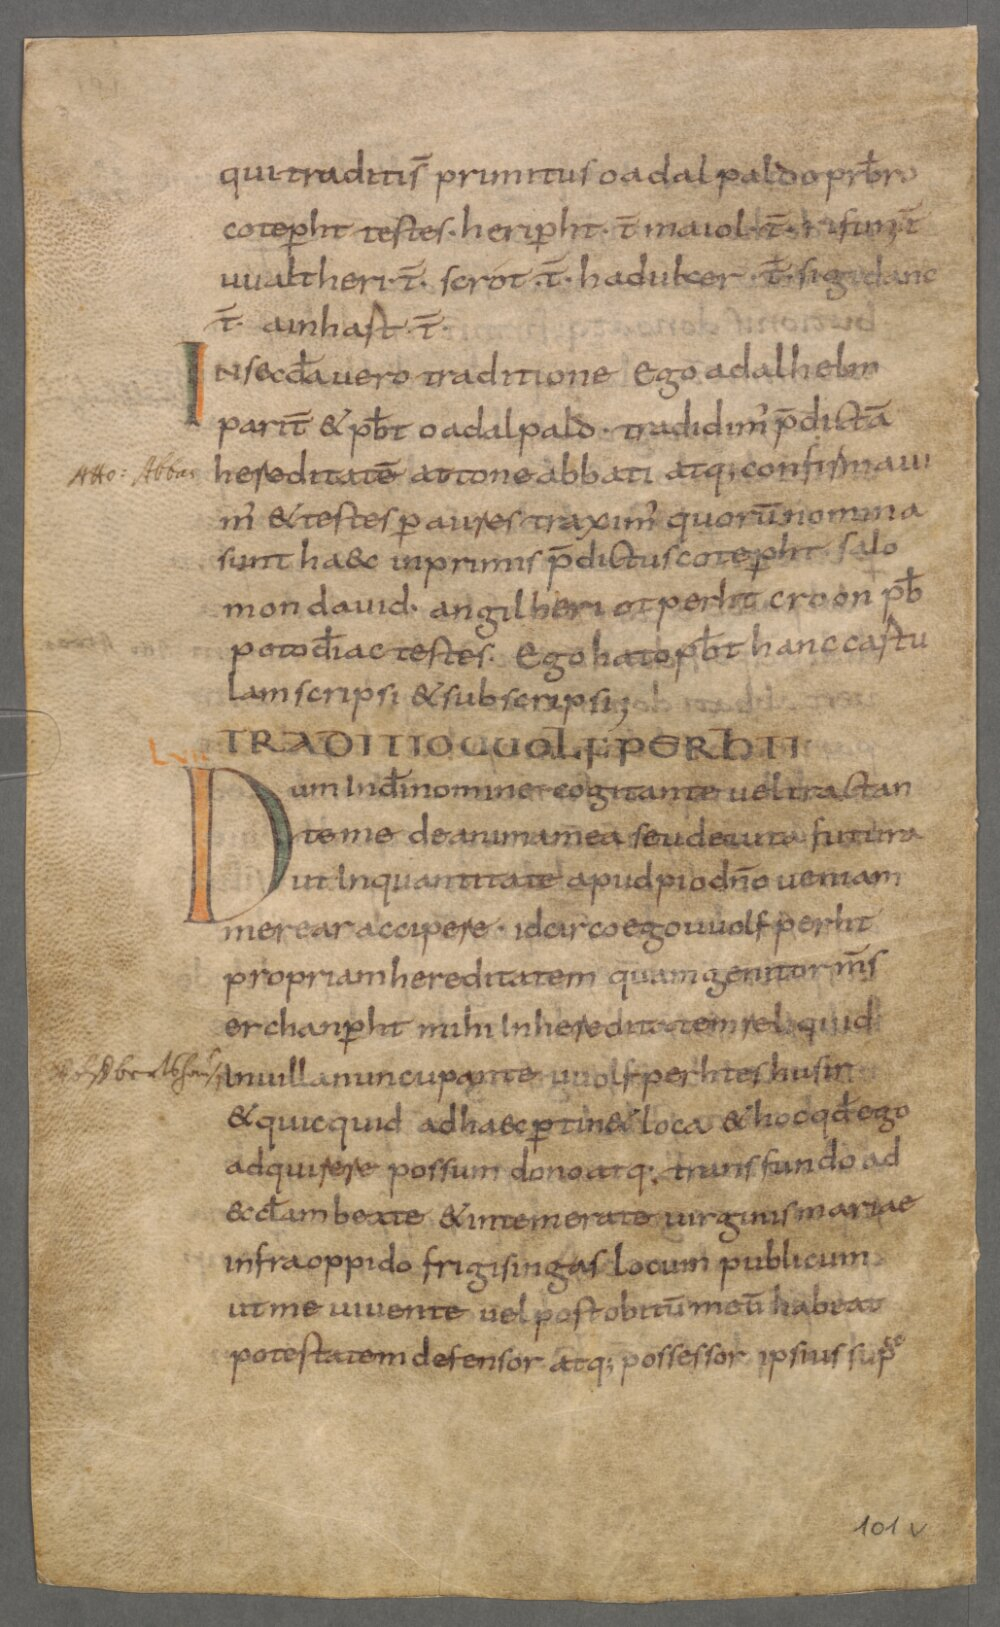 qui traditiſ̄ primitus oadalpaldo prb̄ro
cotep̱ht testes· herip̱ht· t̄ maiol· t̄· rifuni t̄
uualtheri· t̄· scrot· t̄· hadulcer· t̄· sigidanc
t̄· ainhast· t̄·
INsecd̄a uero traditione Ego adalhelm
parit̄ & pb̄t oadalpald· tradidim' p̄dictā
Atto: Abbas
hereditatē attone abbati atq; confirmaui
m' & testes ꝑ aures traxim' quorū nomina
sunt haec inprimis p̄dictus cotep̱ht salo
mon dauid· angilheri otperht croon pb̄
poto diac̄ testes· Ego hato pb̄t hanc cartu
lam scripsi & subscripsi;
LVII
TRADITIO UUOLFPERHTI
Dum In dī nomine cogitante uel tractan
te me de anima mea seu de uita futura
ut In quantitate apud pio dn̄o ueniam
merear accipere· idcirco ego uuolfperht
propriam hereditatem quam genitor m̄s
erchanp̱ht mihi In hereditatem reliquid
In uilla nuncupante uuolfperhteshusin
& quicquid ad haec ꝑtin& loca & hoc qd̄ ego
adquirere possum dono atq; transfundo ad
&cd̄am beate & intemerate uirginis mariae
infra oppido frigisingas locum publicum
ut me uiuente uel post obitū meū habeat
potestatem defensor atq; possessor ipsius supꝰ
101 v